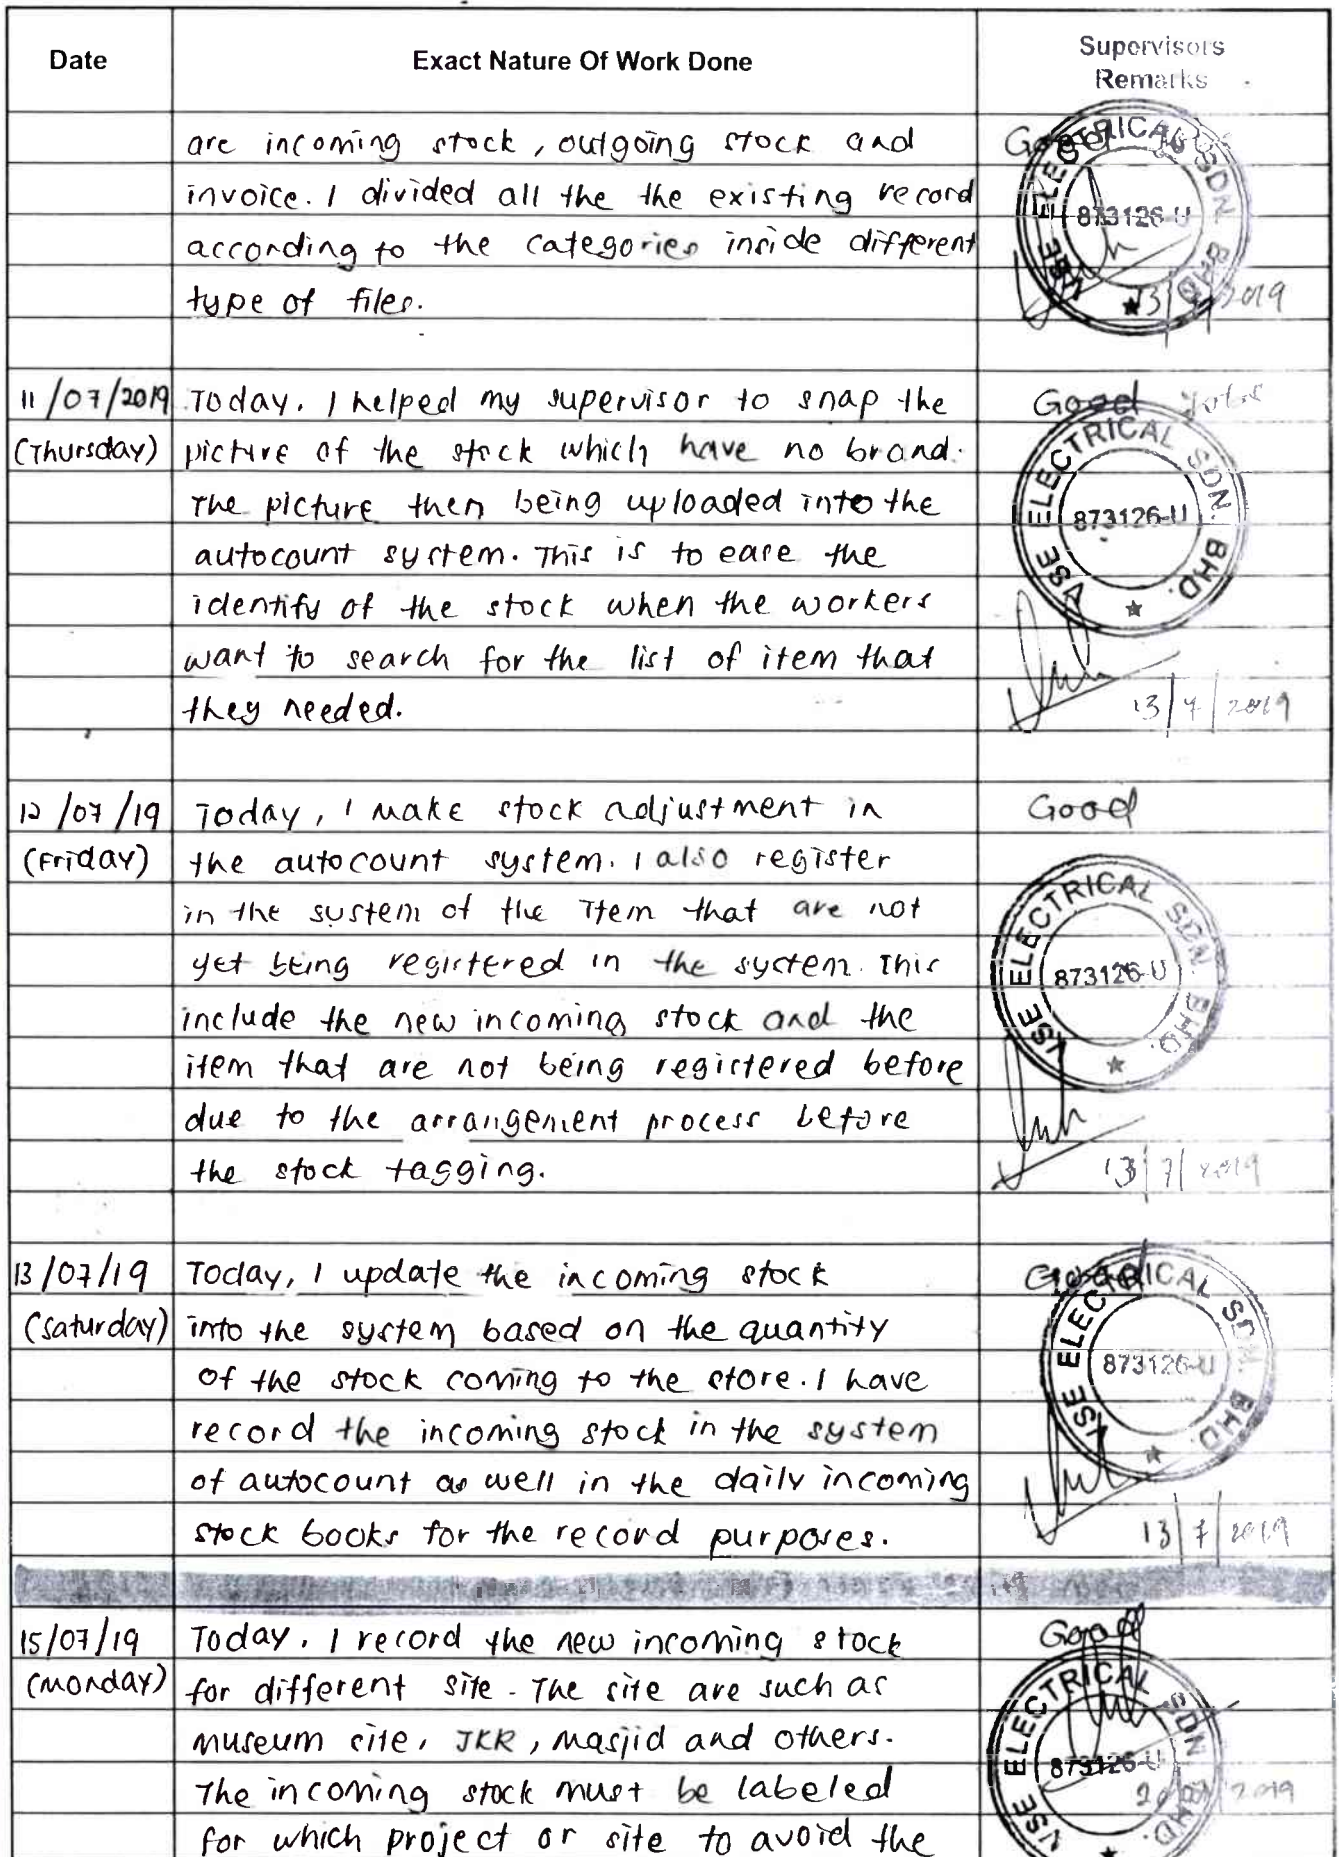 Date Exact Nature Of Work Done Supervisors
Remarks
are incoming stock, outgoing stock and
invoice. I divided all the the existing record
according to the categories inside different
type of files.
Good
VSE ELECTRICAL SDN. BHD.
873126-U
13/7/2019
11/07/2019 Today, I helped my supervisor to snap the Good
(Thursday) picture of the stock which have no brand.
The picture then being uploaded into the
autocount system. This is to ease the
identify of the stock when the workers
want to search for the list of item that
they needed.
VSE ELECTRICAL SDN. BHD.
873126-U
13/7/2019
12/07/19 Today, I make stock adjustment in Good
(Friday) the autocount system. I also register
in the system of the item that are not
yet being registered in the system. This
include the new incoming stock and the
item that are not being registered before
due to the arrangement process before
the stock tagging.
VSE ELECTRICAL SDN. BHD.
873126-U
13/7/2019
13/07/19 Today, I update the incoming stock Good
(Saturday) into the system based on the quantity
of the stock coming to the store. I have
record the incoming stock in the system
of autocount as well in the daily incoming
stock books for the record purposes.
VSE ELECTRICAL SDN. BHD.
873126-U
13/7/2019
15/07/19 Today, I record the new incoming stock Good
(Monday) for different site. The site are such as
museum site, JKR, masjid and others.
The incoming stock must be labeled
for which project or site to avoid the
VSE ELECTRICAL SDN BHD.
873126-U
2019